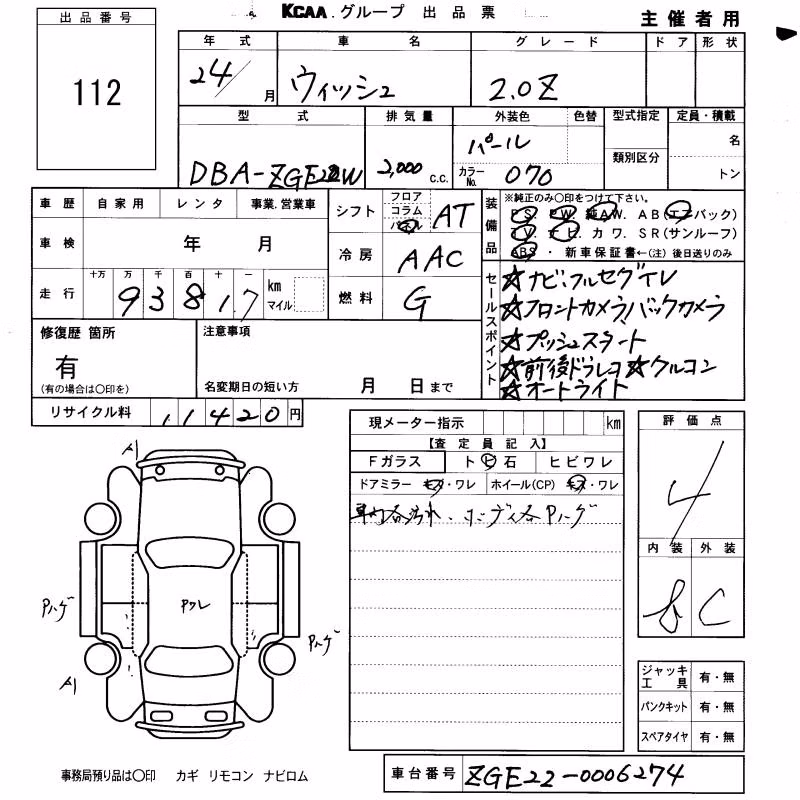 KCAA グループ 出品票
主催者用
出品番号
112
年式 車名 グレード ドア 形状
24/ 月 ウィッシュ 2.0Z
型式 排気量 外装色 色替 型式指定 定員・積載
DBA-ZGE22W 2,000 c.c. パール 名
カラーNo. 070 類別区分 トン
車歴 自家用 レンタ 事業.営業車
シフト フロア コラム パネル AT
装備品 ※純正のみ〇印をつけて下さい。
P S. P W. 純A W. A B (エアバック)
T V. ナビ. カワ. S R (サンルーフ)
ABS ・ 新車保証書←(注) 後日送りのみ
車検 年 月
冷房 AAC
走行 十万 万 千 百 十 一
93,817 km マイル
燃料 G
セールスポイント
☆ナビ、フルセグTV
☆フロントカメラ、バックカメラ
☆プッシュスタート
☆前後ドラレコ ☆クルコン
☆オートライト
修復歴 箇所
有
(有の場合は〇印を)
注意事項
名変期日の短い方 月 日まで
リサイクル料 11420円
現メーター指示 km
【査定員記入】
Fガラス ト ビ 石 ヒビワレ
ドアミラー キズ・ワレ ホイール(CP) キズ・ワレ
車内各汚れ、ボディ各Pハゲ
評価点
4
内装 外装
C
A1
Pハゲ
Pワレ
Pハゲ
A1
ジャッキ工具 有・無
パンクキット 有・無
スペアタイヤ 有・無
事務局預り品は〇印 カギ リモコン ナビロム
車台番号 ZGE22-0006274